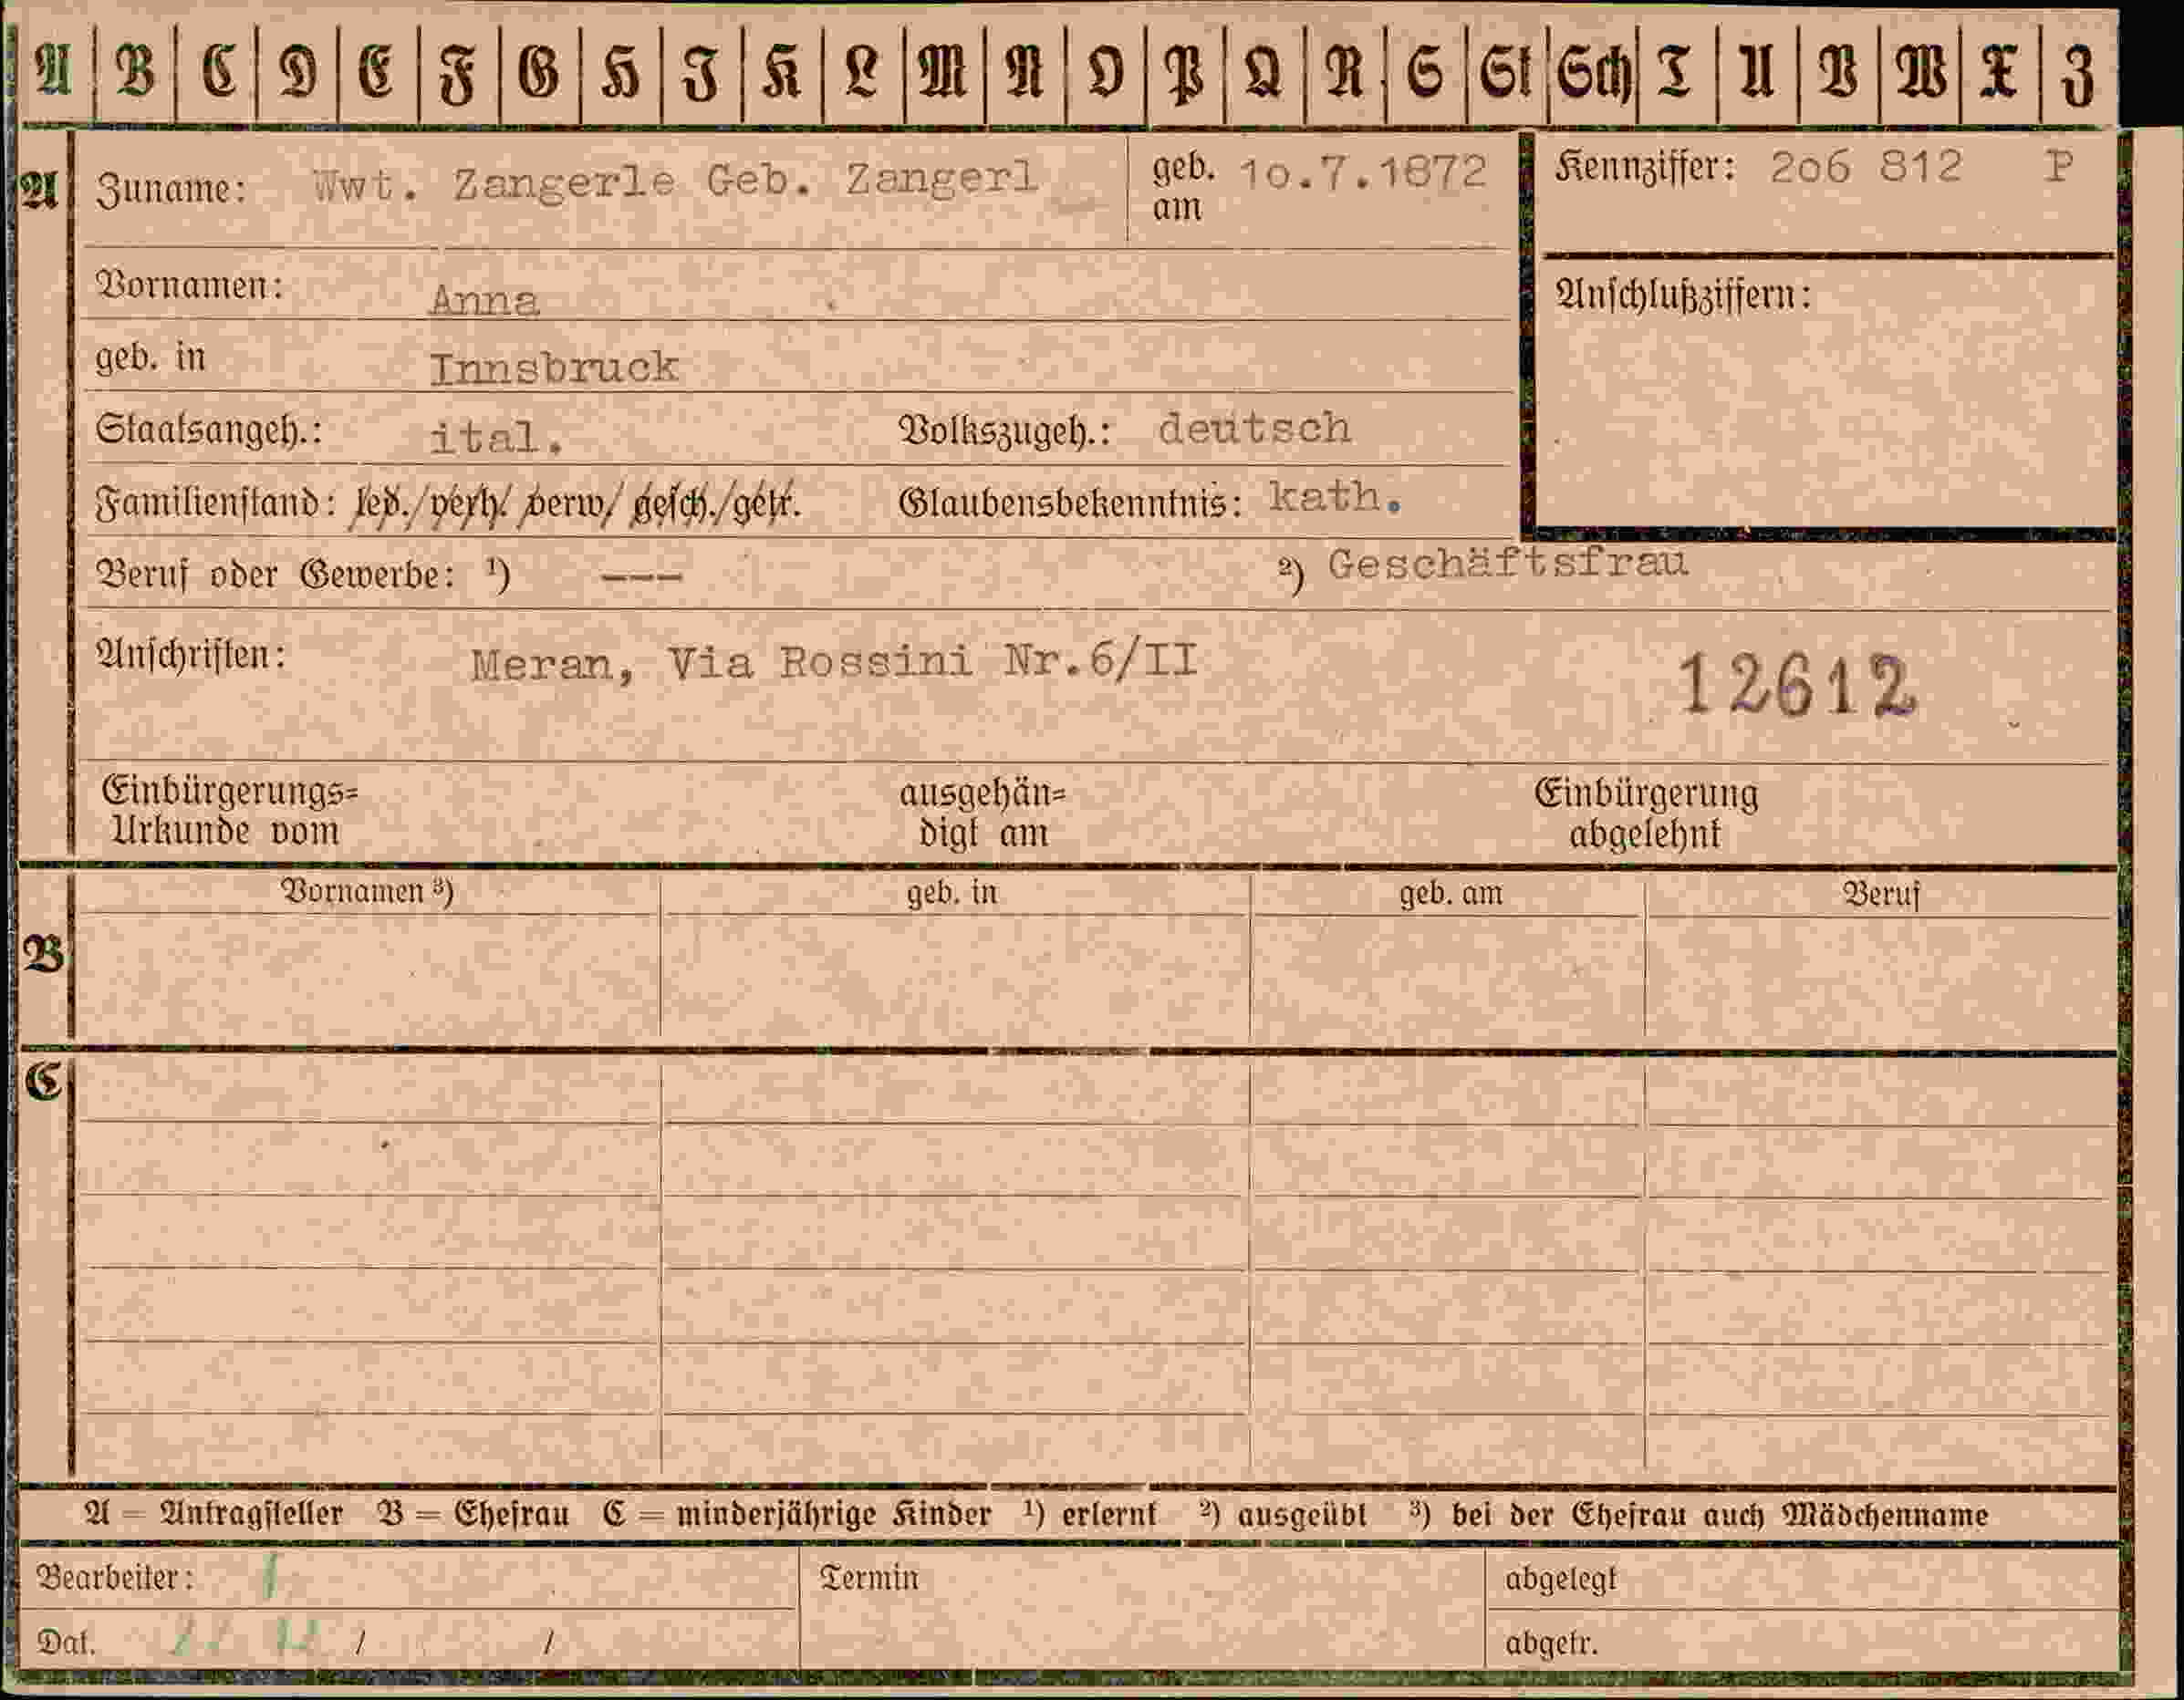 A B C D E F G H J K L M N O P Q R S St Sch T U V W X Z
A Zuname: Wwt. Zangerle Geb. Zangerl geb. am 10.7.1872 Kennziffer: 206 812 P
Vornamen: Anna Anschlußziffern:
geb. in Innsbruck
Staatsangeh.: ital. Volkszugeh.: deutsch
Familienstand: led./verh./verw/gesch./getr. Glaubensbekenntnis: kath.
Beruf oder Gewerbe: ¹) --- ²) Geschäftsfrau
Anschriften: Meran, Via Rossini Nr.6/II 12612
Einbürgerungs= ausgehän= Einbürgerung
Urkunde vom digt am abgelehnt
Vornamen ³) geb. in geb. am Beruf
B
C
A = Antragsteller B = Ehefrau C = minderjährige Kinder ¹) erlernt ²) ausgeübt ³) bei der Ehefrau auch Mädchenname
Bearbeiter: Termin abgelegt
Dat. / / abgetr.